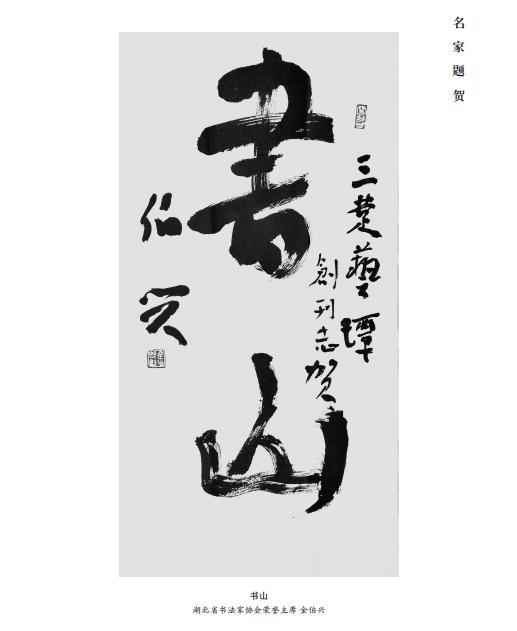 名家题贺
書山
三楚藝譚
創刊志贺
伯兴
书山
湖北省书法家协会荣誉主席 金伯兴